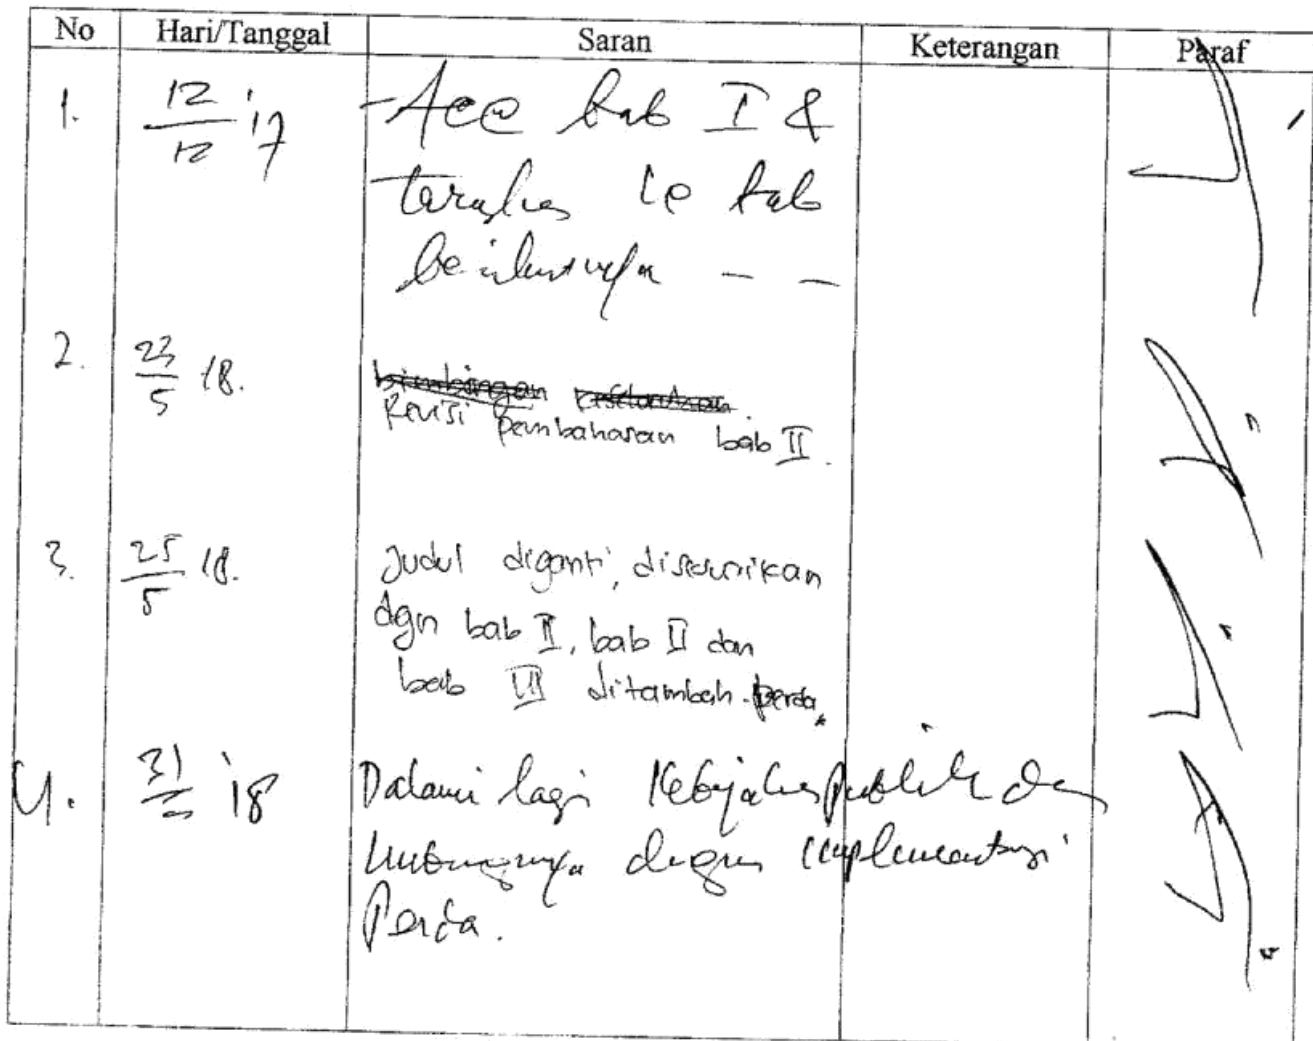 No Hari/Tanggal Saran Keterangan Paraf
1. 12/12 '17 - Acc bab I &
teruskan ke bab
berikutnya - -
2. 23/5 18. bimbingan
Revisi pembahasan bab II.
3. 25/5 18. Judul diganti, disesuaikan
dgn bab II, bab II dan
bab III ditambah perda.
4. 31 '18 Dalami lagi Kebijakan Publik dan
hubungnya dengan implementasi
Perda.